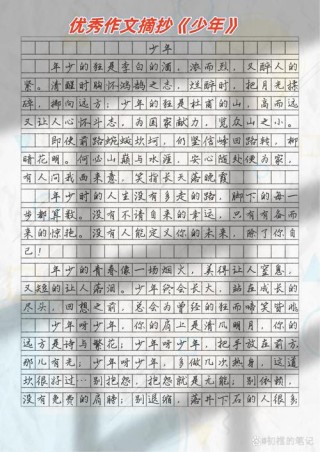 优秀作文摘抄《少年》
少年
年少的狂是李白的酒，浓而烈，又醉人的
紧。清醒时胸怀鸿鹄之志，烂醉时，把月光揉
碎，撒向远方；少年的狂是杜甫的山，高大而
又让人心怀斗志，为国家献力，览众山之小。
即使前路蜿蜒坎坷，们坚信峰回路转，柳
暗花明。何必山巅与水涯，安心随处便为家，
有人问我西来意，笑指长天落晚霞
年少时的人生没有多走的路，脚下的每一
步都算数。没有不请自来的幸运，只有有备而
来的惊艳。没有人能定义你的未来，除了你自
己！
年少的青春像一场烟火，美得让人窒息，
又短的让人落泪。少年终会长大，站在成长的
尽头，回想之前，总会为曾经的狂而啼笑皆非
少年呀少年，你的肩上是清风明月，你的
远方是诗与繁花；少年呀少年，把手放在前方
那儿有光；少年呀少年，多做几次热身，这道
坎很好过…别抱怨，抱怨就是无能；别依赖，
没有免费的肩膀；别退缩，落井下石的人很多
@初橙的笔记